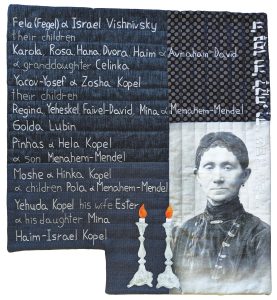 Fela (Fegel) & Israel Vishnivsky
their children
Karola, Rosa, Hana, Dvora, Haim & Avraham-David
& granddaughter Celinka
Yacov-Yosef & Zosha Kopel
their children
Regina, Yeheskel, Faivel-David, Mina & Menahem-Mendel
Golda Lubin
Pinhas & Hela Kopel
& son Menahem-Mendel
Moshe & Hinka Kopel
& children Pola & Menahem-Mendel
Yehuda Kopel his wife Ester
& his daughter Mina
Haim-Israel Kopel